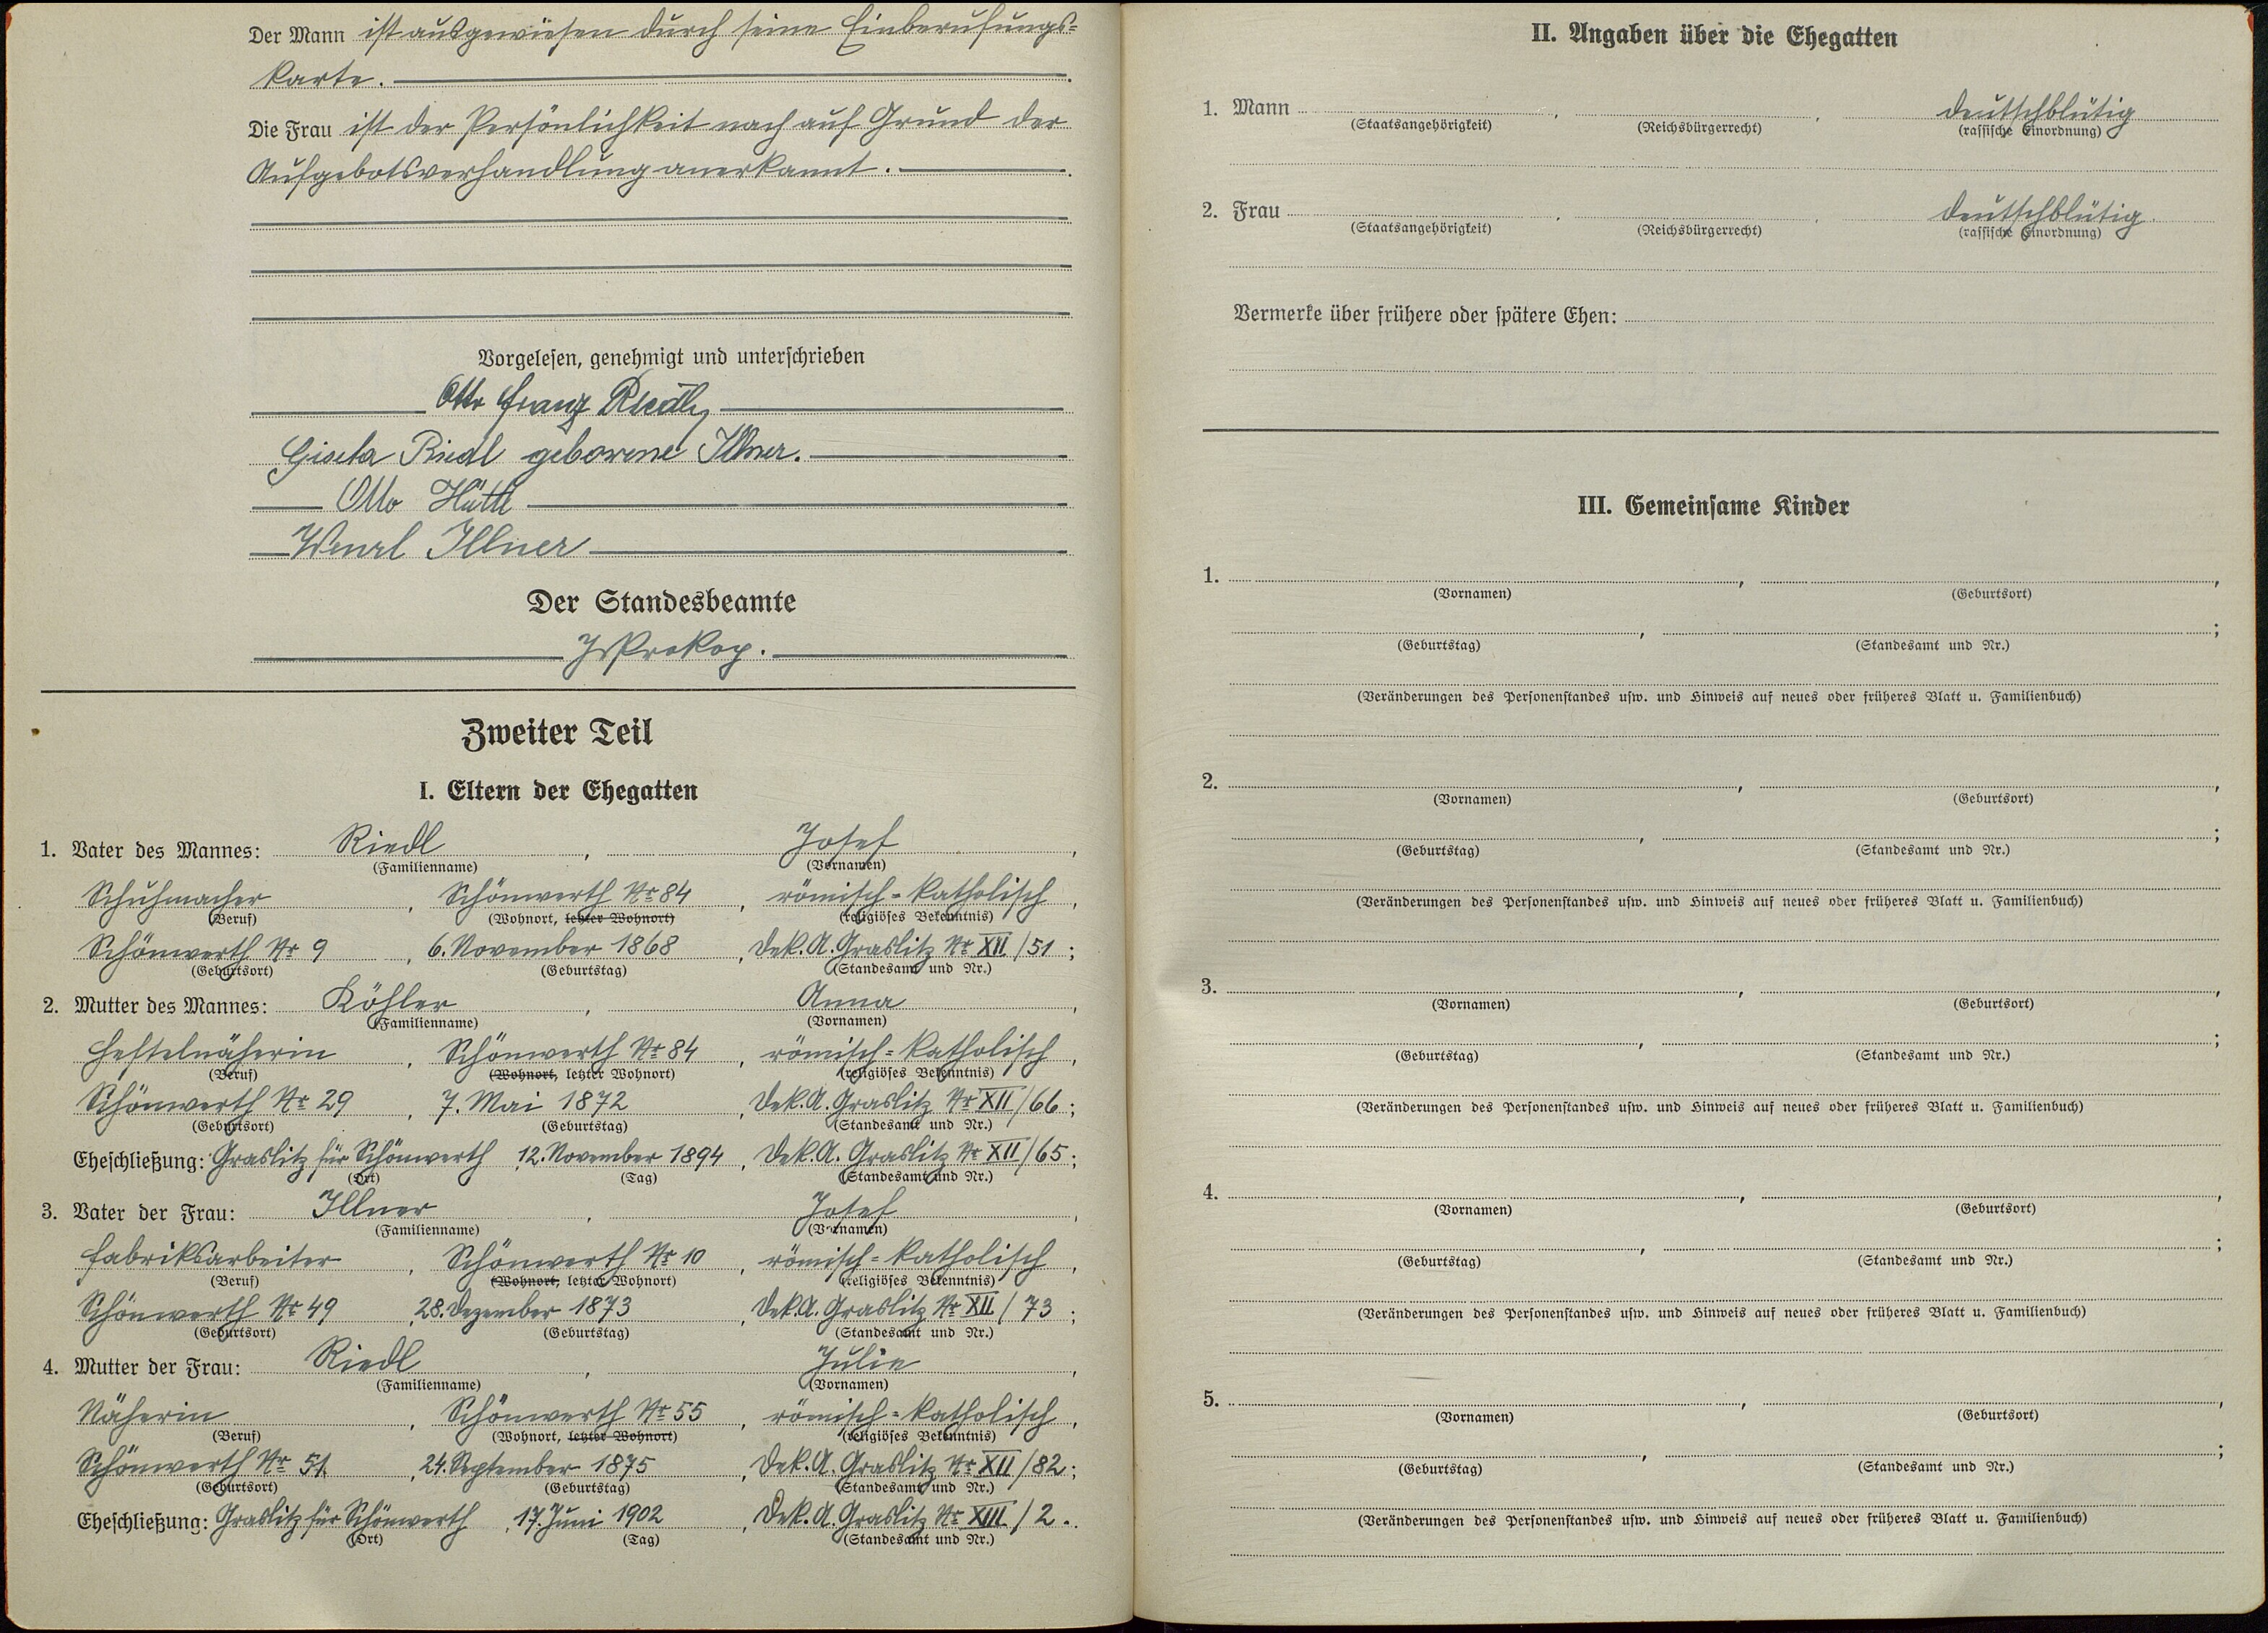 Der Mann ist ausgewiesen durch seine Einberufungs=
karte.
Die Frau ist der Persönlichkeit nach auf Grund der
Aufgebotsverhandlung anerkannt.
Vorgelesen, genehmigt und unterschrieben
Otto Franz Riedl
Gisela Riedl geborene Illner.
Otto Hüttl
Wenzl Illner
Der Standesbeamte
Prokop.
Zweiter Teil
I. Eltern der Ehegatten
1. Vater des Mannes: Riedl, Josef,
(Familienname) (Vornamen)
Schuhmacher, Schönwerth Nr 84, römisch=katholisch,
(Beruf) (Wohnort, letzter Wohnort) (religiöses Bekenntnis)
Schönwerth Nr 9, 6. November 1868, Dek.A. Graslitz Nr XII/51;
(Geburtsort) (Geburtstag) (Standesamt und Nr.)
2. Mutter des Mannes: Köhler, Anna,
(Familienname) (Vornamen)
Heftelnäherin, Schönwerth Nr 84, römisch=katholisch,
(Beruf) (Wohnort, letzter Wohnort) (religiöses Bekenntnis)
Schönwerth Nr 29, 7. Mai 1872, Dek.A. Graslitz Nr XII/66;
(Geburtsort) (Geburtstag) (Standesamt und Nr.)
Eheschließung: Graslitz für Schönwerth, 12. November 1894, Dek.A. Graslitz Nr XII/65;
(Ort) (Tag) (Standesamt und Nr.)
3. Vater der Frau: Illner, Josef,
(Familienname) (Vornamen)
Fabriksarbeiter, Schönwerth Nr 10, römisch=katholisch,
(Beruf) (Wohnort, letzter Wohnort) (religiöses Bekenntnis)
Schönwerth Nr 49, 28. Dezember 1873, Dek.A. Graslitz Nr XII/73;
(Geburtsort) (Geburtstag) (Standesamt und Nr.)
4. Mutter der Frau: Riedl, Julie,
(Familienname) (Vornamen)
Näherin, Schönwerth Nr 55, römisch=katholisch,
(Beruf) (Wohnort, letzter Wohnort) (religiöses Bekenntnis)
Schönwerth Nr 51, 24. September 1875, Dek.A. Graslitz Nr XII/82;
(Geburtsort) (Geburtstag) (Standesamt und Nr.)
Eheschließung: Graslitz für Schönwerth, 17. Juni 1902, Dek.A. Graslitz Nr XIII/2.
(Ort) (Tag) (Standesamt und Nr.)
II. Angaben über die Ehegatten
1. Mann , , deutschblütig
(Staatsangehörigkeit) (Reichsbürgerrecht) (rassische Einordnung)
2. Frau , , deutschblütig
(Staatsangehörigkeit) (Reichsbürgerrecht) (rassische Einordnung)
Vermerke über frühere oder spätere Ehen:
III. Gemeinsame Kinder
1. , ,
(Vornamen) (Geburtsort)
, ;
(Geburtstag) (Standesamt und Nr.)
(Veränderungen des Personenstandes usw. und Hinweis auf neues oder früheres Blatt u. Familienbuch)
2. , ,
(Vornamen) (Geburtsort)
, ;
(Geburtstag) (Standesamt und Nr.)
(Veränderungen des Personenstandes usw. und Hinweis auf neues oder früheres Blatt u. Familienbuch)
3. , ,
(Vornamen) (Geburtsort)
, ;
(Geburtstag) (Standesamt und Nr.)
(Veränderungen des Personenstandes usw. und Hinweis auf neues oder früheres Blatt u. Familienbuch)
4. , ,
(Vornamen) (Geburtsort)
, ;
(Geburtstag) (Standesamt und Nr.)
(Veränderungen des Personenstandes usw. und Hinweis auf neues oder früheres Blatt u. Familienbuch)
5. , ,
(Vornamen) (Geburtsort)
, ;
(Geburtstag) (Standesamt und Nr.)
(Veränderungen des Personenstandes usw. und Hinweis auf neues oder früheres Blatt u. Familienbuch)